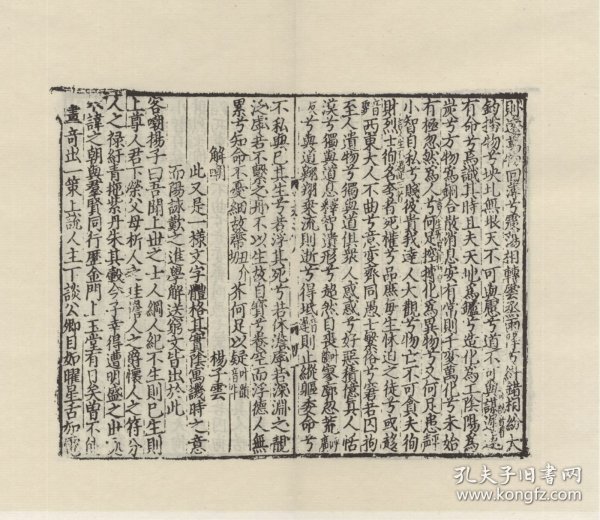 則遠萬物回薄兮震蕩相轉雲蒸雨降兮糾錯相紛大
鈞播物兮坱圠無垠天不可與慮兮道不可與謀遲速
有命兮焉識其時且夫天地為鑪兮造化為工陰陽為
炭兮萬物為銅合散消息安有常則千變萬化兮未始
有極忽然為人兮何足控摶化為異物兮又何足患
小智自私兮賤彼貴我達人大觀兮物亡不可貪夫狥
財烈士狥名夸者死權兮品庶每生怵迫之徒兮或趍
西東大人不曲兮意變齊同愚士繫俗兮窘若囚拘
至人遺物兮獨與道俱衆人惑惑兮好惡積億真人恬
漠兮獨與道息釋智遺形兮超然自喪寥廓忽荒
兮與道翱翔乗流則逝兮得坻則止縱軀委命兮
不私與已其生兮若浮其死兮若休澹虖若深淵之靚
泛虖若不繫之舟不以生故自寶兮養空而浮德人無
累兮知命不憂細故蔕芥何足以疑
解嘲 楊子雲
此又是一様文字體格其實陰寓譏時之意
而陽詠歎之進學解送窮文皆出於此
客嘲楊子曰吾聞上世之士人綱人紀不生則已生則
上尊人君下榮父母析人之珪儋人之爵懷人之符分
人之禄紆青拖紫丹朱其轂今子幸得遭明盛之世
不諱之朝與羣賢同行歷金門上玉堂有日矣曽不
畫奇出一策上説人主下談公卿目如曜星舌如電
孔夫子旧书网
www.kongfz.com